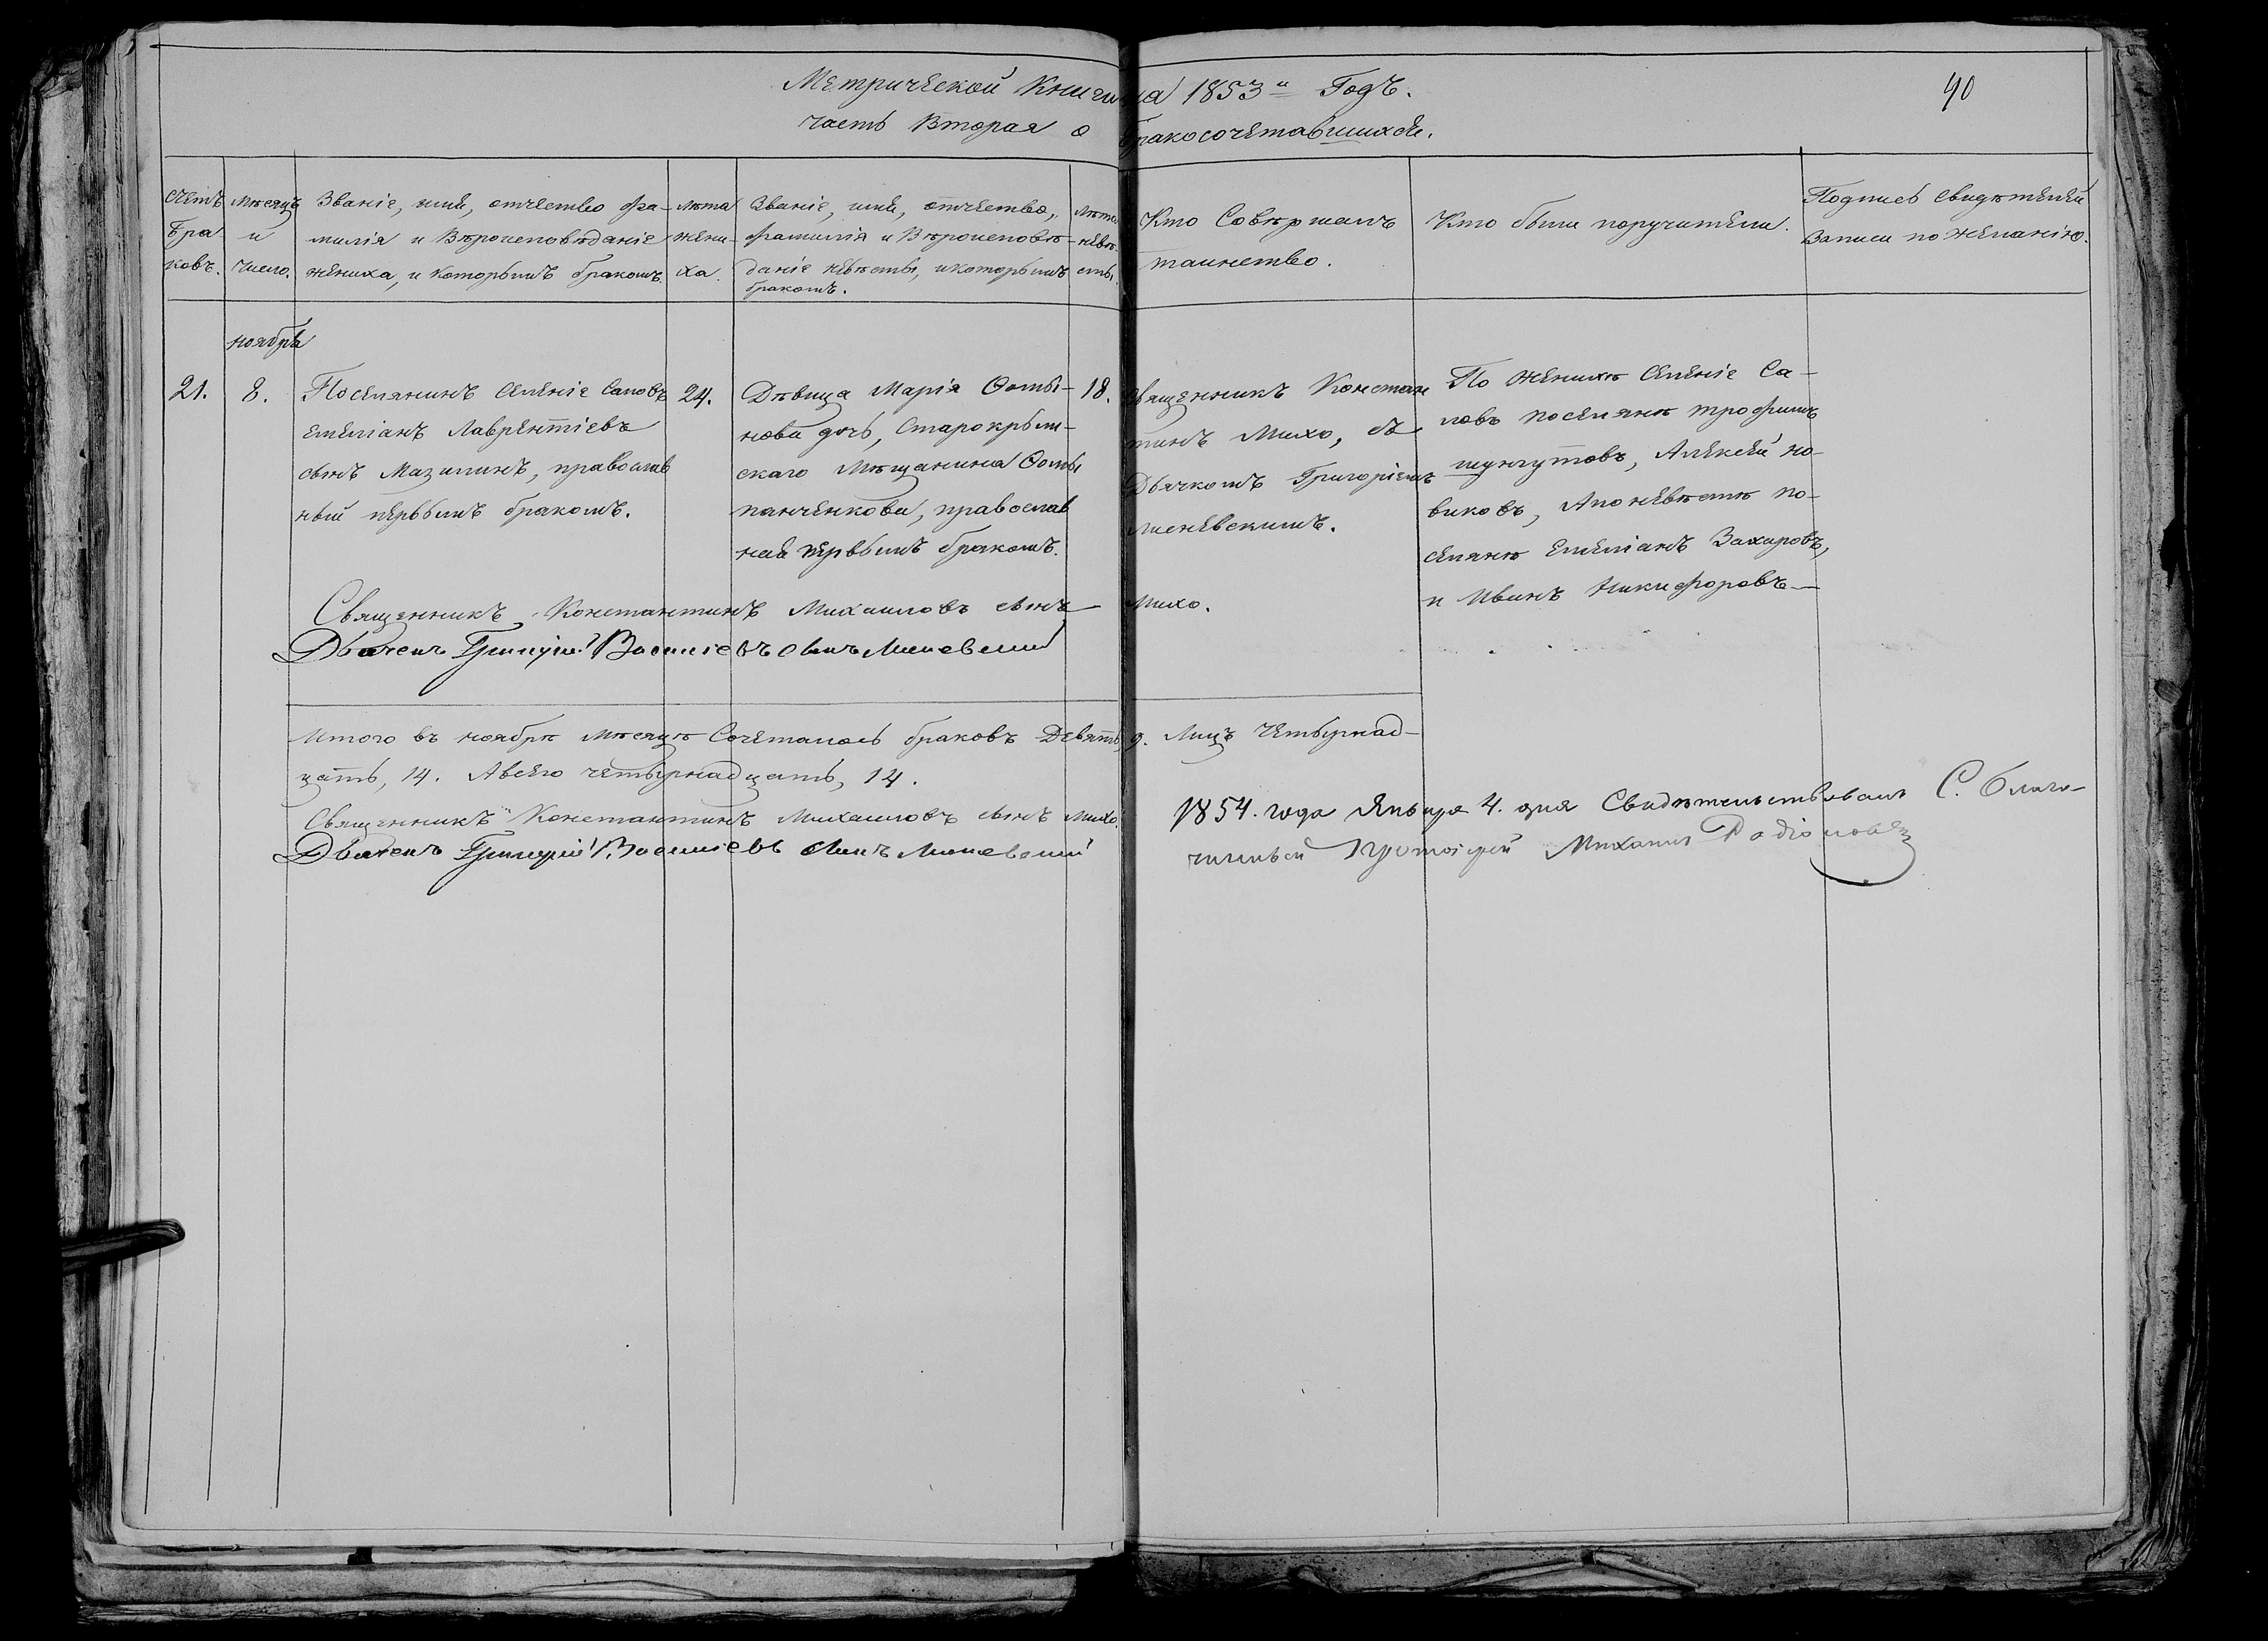 Метрической Книги на 1853й Годъ.
40
часть Вторая о бракосочетавшихся.
Счетъ браковъ.
Мѣсяцъ и число.
Званіе, имя, отчество фа-
милія и Вѣроисповѣданіе
жениха, и которымъ бракомъ.
лѣта
жени-
ха.
Званіе, имя, отчество,
фамилія и Вѣроисповѣ-
даніе невѣсты, и которымъ
бракомъ.
Лѣта
невѣ-
сты.
Кто Совѣршалъ
таинство.
Кто были поручители.
Подпись свидѣтелей
Записи по желанію.
ноября
21.
8.
Поселянинъ Селеніе Саловъ
Емеліанъ Лаврентіевъ
сынъ Мазилинъ, православ
ный первымъ бракомъ.
24.
Дѣвица Марія Ѳомы-
нова дочь, Старокрым-
скаго Мѣщанина Ѳомы
панченкова, православ
ная первымъ бракомъ.
18.
Священникъ Констан
тинъ Михо, съ
Дьячкомъ Григоріемъ
лисневскимъ.
По женихѣ Селеніе Са-
ловъ поселянѣ трофимъ
шунгутовъ, Алексей но-
виковъ, А по невѣстѣ по-
селянѣ Емеліанъ Захаровъ,
и Иванъ Никифоровъ
Священникъ Константинъ Михаиловъ сынъ Михо.
Дьячекъ Григорій Василіевъ сынъ Лисневский
Итого въ ноябрѣ мѣсяцѣ Сочеталось браковъ Девять, 9. Лицъ Четырнад-
цать, 14. А всего четырнадцать, 14.
Священникъ Константинъ Михаиловъ сынъ Михо.
Дьячекъ Григорій Василіевъ сынъ Лисневский
1854. года Января 4. дня Свидѣтельствовалъ С. Благо-
чинный Протоіерей Михаилъ Родіоновъ